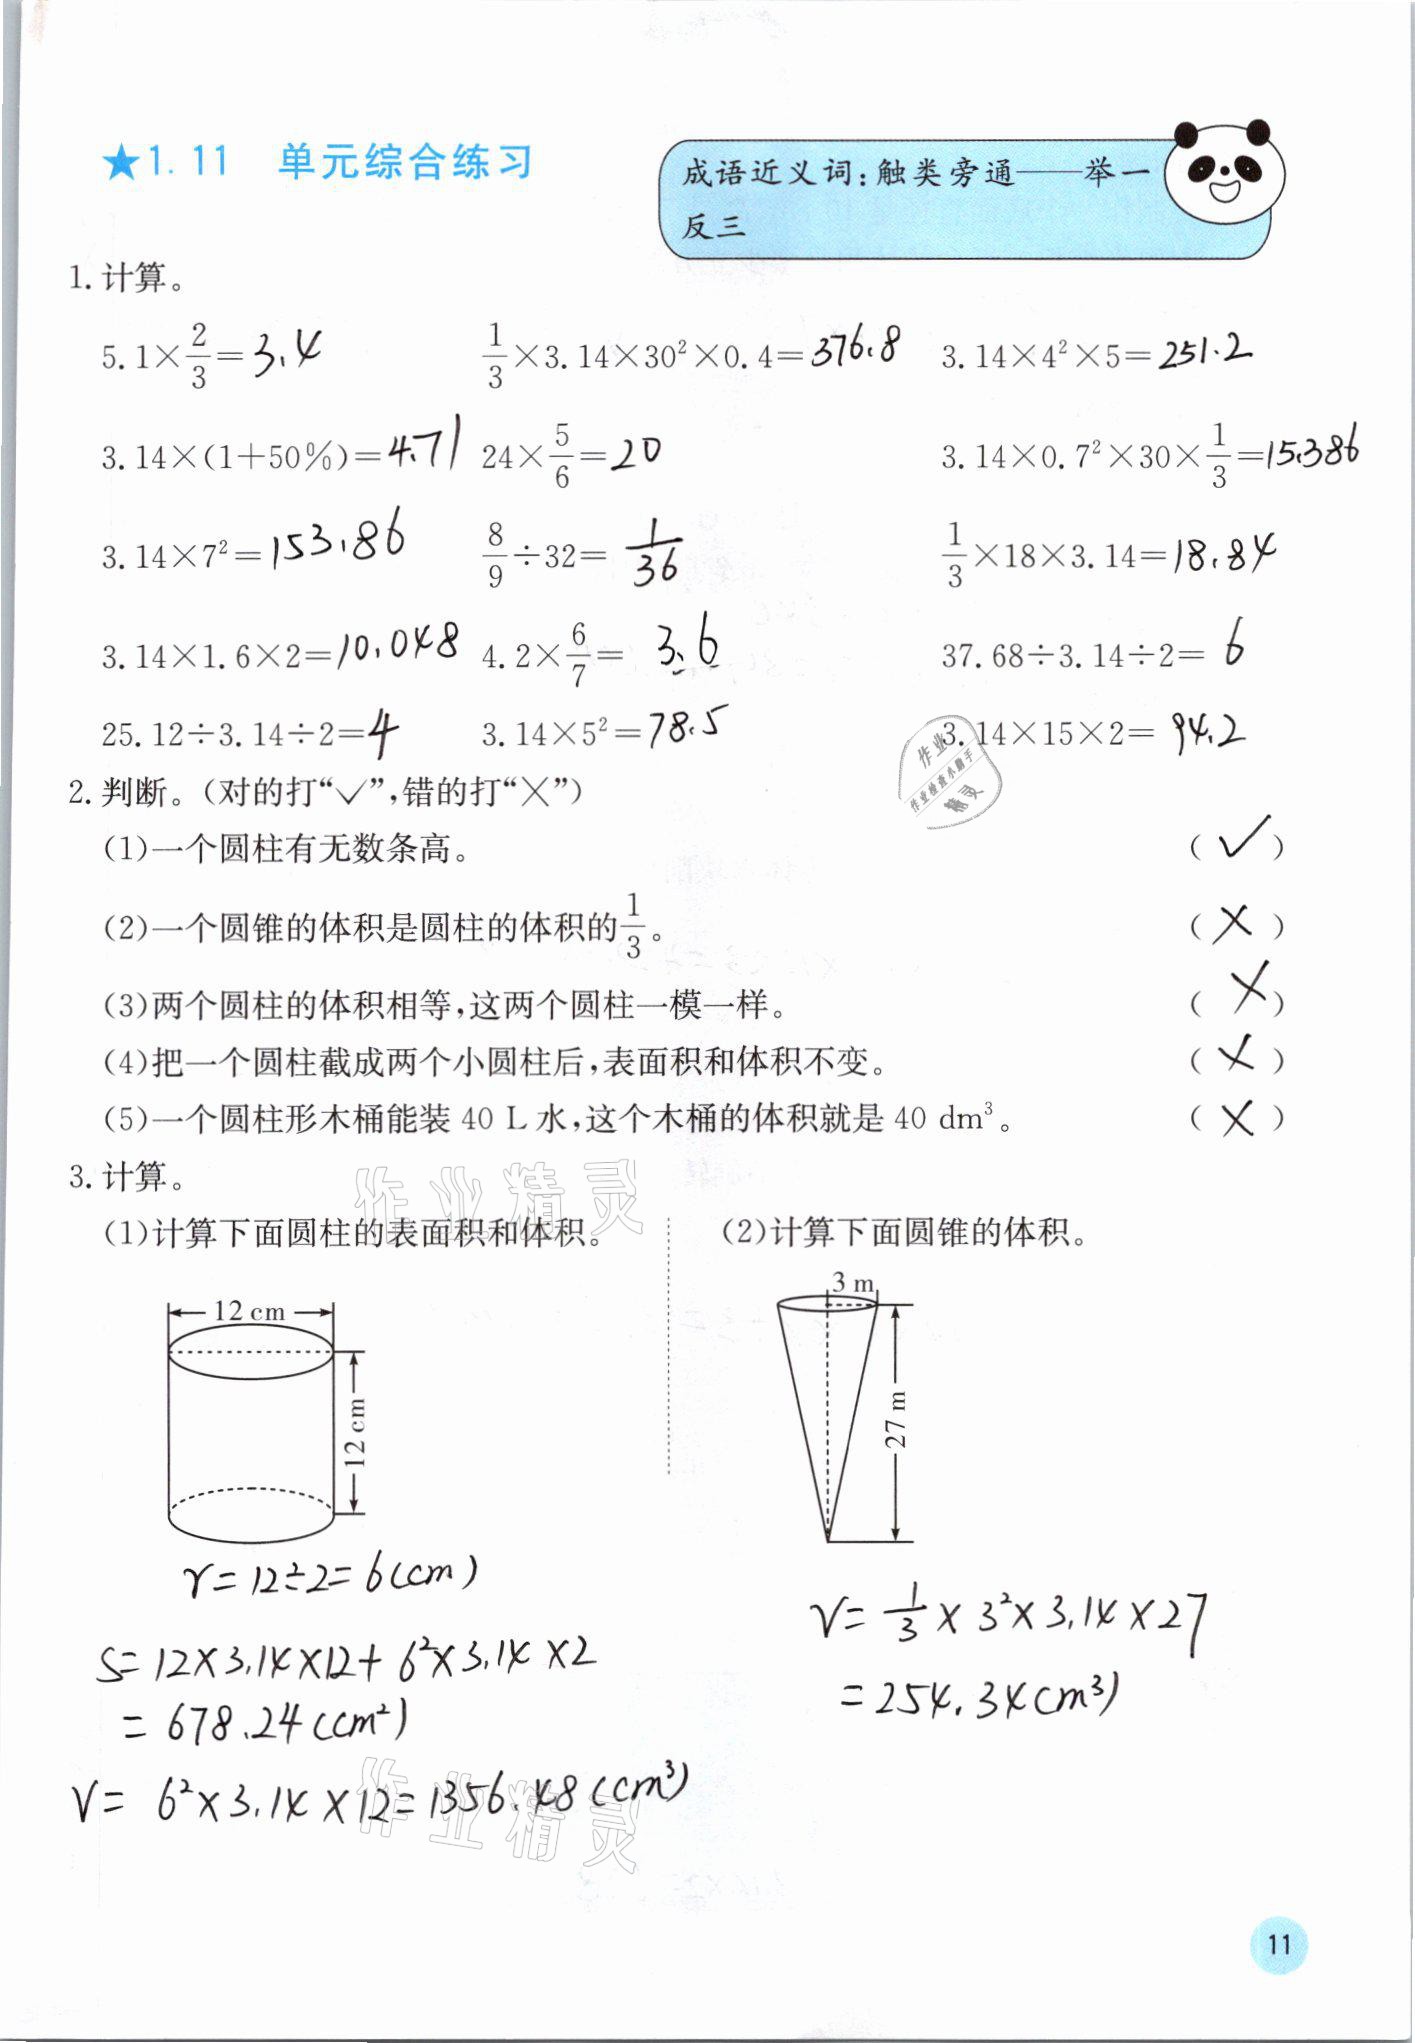 ★1.11 单元综合练习
成语近义词:触类旁通——举一
反三
1.计算。
5.1×2/3=3.4 1/3×3.14×30²×0.4=376.8 3.14×4²×5=251.2
3.14×(1+50%)=4.71 24×5/6=20 3.14×0.7²×30×1/3=15.386
3.14×7²=153.86 8/9÷32=1/36 1/3×18×3.14=18.84
3.14×1.6×2=10.048 4.2×6/7=3.6 37.68÷3.14÷2=6
25.12÷3.14÷2=4 3.14×5²=78.5 3.14×15×2=94.2
作业
作业检查小助手
精灵
2.判断。(对的打“✓”,错的打“×”)
(1)一个圆柱有无数条高。 (✓)
(2)一个圆锥的体积是圆柱的体积的1/3。 (×)
(3)两个圆柱的体积相等,这两个圆柱一模一样。 (×)
(4)把一个圆柱截成两个小圆柱后,表面积和体积不变。 (×)
(5)一个圆柱形木桶能装 40 L 水,这个木桶的体积就是 40 dm³。 (×)
3.计算。
作业精灵
(1)计算下面圆柱的表面积和体积。
12 cm
12 cm
r=12÷2=6(cm)
S=12×3.14×12+6²×3.14×2
=678.24(cm²)
V= 6²×3.14×12=1356.48(cm³)
作业精灵
(2)计算下面圆锥的体积。
3 m
27 m
V=1/3×3²×3.14×27
=254.34(cm³)
11